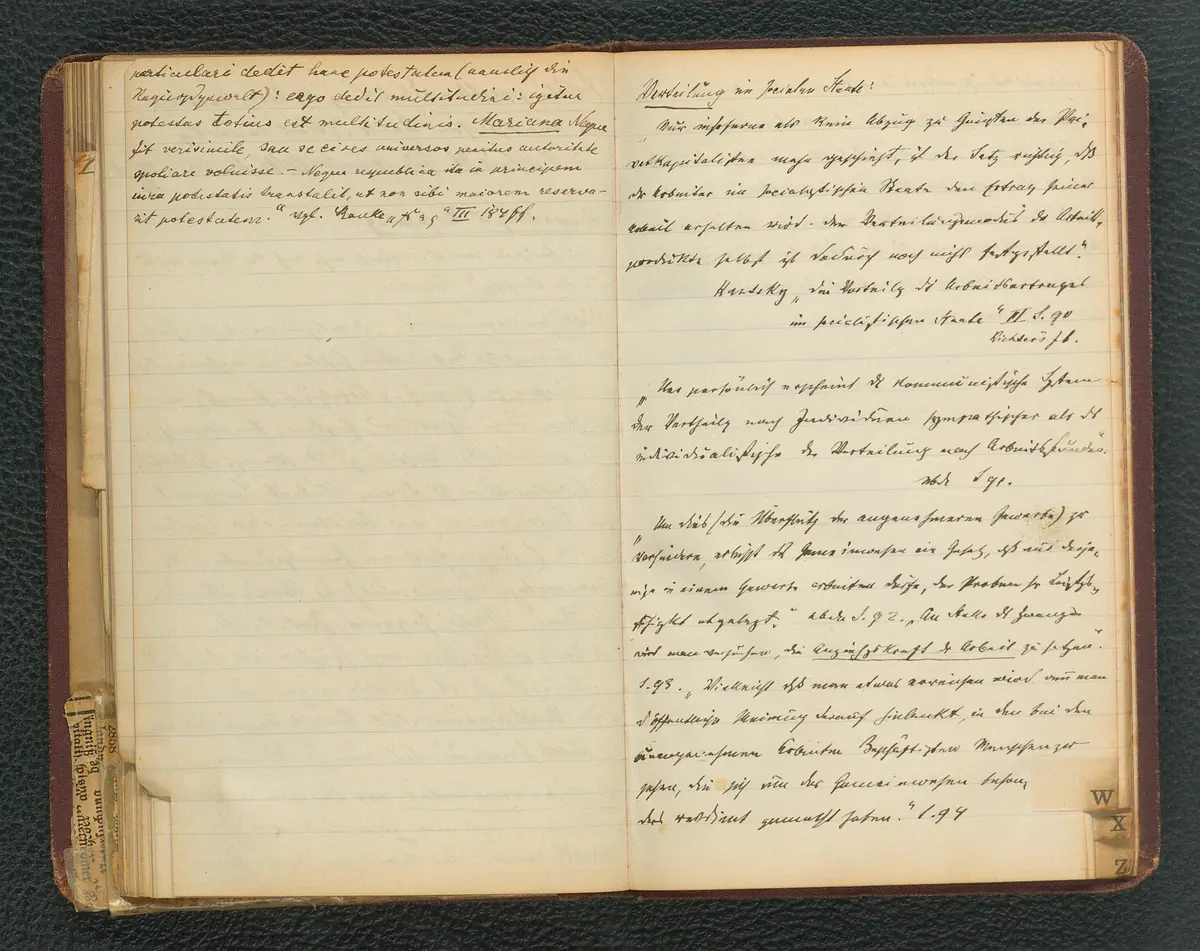 particulari dedit hanc potestatem (nämlich die
: ergo dedit multitudini: igitur
potestas totius est multitudinis. Mariana Neque
fit verisimile, sua se cives universos penitus autoritate
spoliare voluisse. – Neque republica ita in principem
iura potestatis transtulit, ut non sibi maiorem reserva-
rit potestatem." vgl. Ranke III 184 ff.
Verteilung im socialen Staate:
"Nur insoferne als kein Abzug zu Gunsten des Pri-
vatkapitalisten mehr geschieht, ist der Satz richtig, daß
der Arbeiter im socialistischen Staate den Ertrag seiner
Arbeit erhalten wird. Der Verteilungsmodus der Arbeits-
produkte selbst ist dadurch noch nicht festgestellt."
Kautsky "Die Verteilg des Arbeitsertrages
im socialistischen Staate" II S. 90
Richters Jb.
"Uns persönlich erscheint das kommunistische System
der Vertheilg nach Individuen sympathischer als das
individualistische der Verteilung nach Arbeitsstunden."
ebda S 91.
"Um dies (die der angenehmeren Gewerbe) zu
verhindern, erläßt das Gemeinwesen ein Gesetz, daß nur derje-
nige in einem Gewerbe arbeiten dürfe, der Proben sr Leistgs-
fähigkt abgelegt." ebda S. 92. "An Stelle des Zwanges
wird man versuchen, die Anziehgskraft der Arbeit zu setzen."
S. 93. "Vielleicht daß man etwas erreichen wird wenn man
d öffentliche Meinung darauf hinlenkt, in den bei den
unangenehmen Arbeiten Beschäftigten Menschen zu
sehen, die sich um das Gemeinwesen beson-
ders verdient gemacht haben." S. 94
W
X
Z